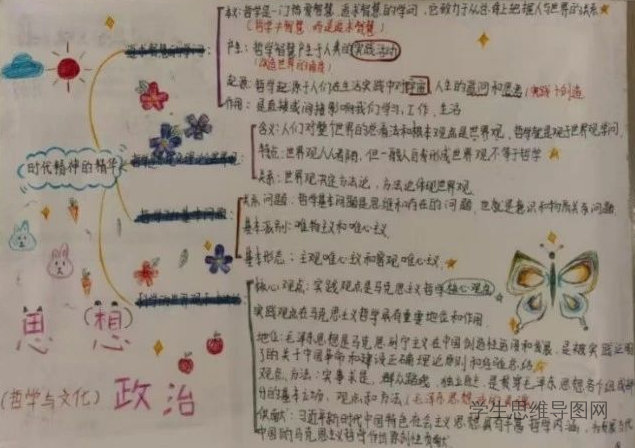 本义：哲学是一门热爱智慧、追求智慧的学问，它致力于从总体上把握人与世界的关系
(哲学不智慧，而是追求智慧)
追求智慧的学问
产生：哲学智慧产生于人类的实践活动
(改造世界的活动)
起源：哲学起源于人们在生活实践中对 人生的追问和思考
作用：是直接或间接影响我们学习、工作、生活
时代精神的精华
含义：人们对整个世界的总看法和根本观点是世界观，哲学就是关于世界观学问
特点：世界观人人都有，但一般人自发形成世界观不等于哲学
关系：世界观决定方法论，方法论体现世界观
哲学的基本问题
关系问题：哲学基本问题是思维和存在的问题，也就是意识和物质关系问题
基本派别：唯物主义和唯心主义
基本形态：主观唯心主义和客观唯心主义
科学的世界观和方法论
核心观点：实践观点是马克思主义哲学核心观点
实践观点在马克思主义哲学具有重要地位和作用
地位：毛泽东思想是马克思列宁主义在中国创造性运用和发展，是被实践证明
了的关于中国革命和建设正确理论原则和经验总结
观点、方法：实事求是，群众路线，独立自主，是贯穿毛泽东思想各个组成部
分的基本立场，观点和方法
习近平新时代中国特色社会主义思想 哲学内涵，为发展当代
中国的马克思主义哲学作出原创性贡献
思 想
(哲学与文化) 政治
学生思维导图网